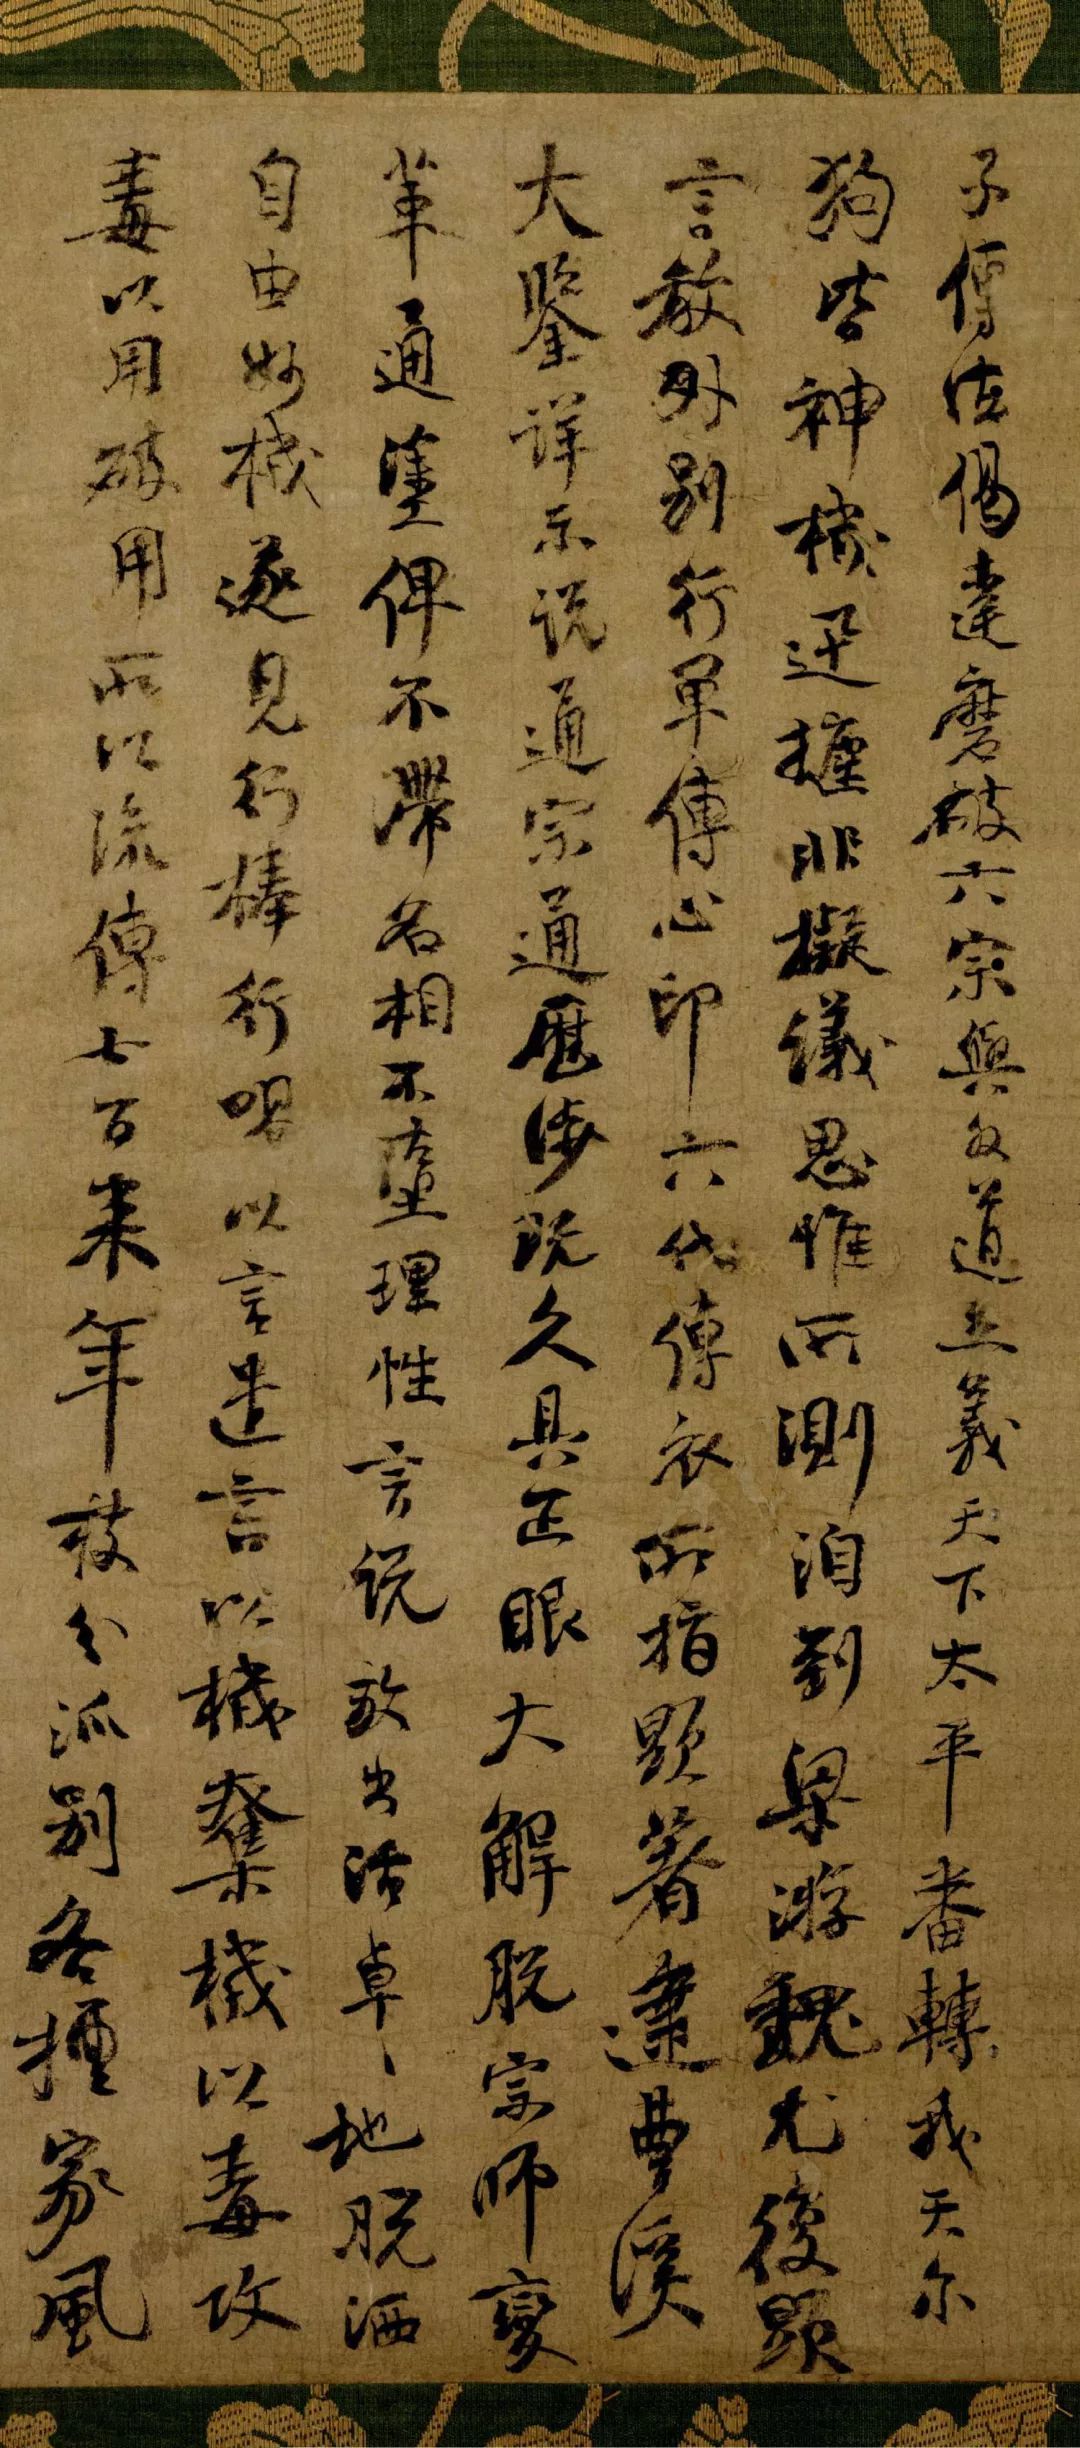 子傳法偈達磨破六宗與外道立義天下太平番轉我天尔
狗皆神機迅捷非擬議思惟所測洎到梁游魏尤復顯
言教外別行單傳心印六代傳衣所指顯著逮曹溪
大鑒詳示說通宗通歷涉既久具正眼大解脫宗師變
革通塗俾不滯名相不墮理性言說放出活卓卓地脫洒
自由妙機遂見行棒行喝以言遣言以機奪機以毒攻
毒以用破用所以流傳七百來年枝分派別各擅家風